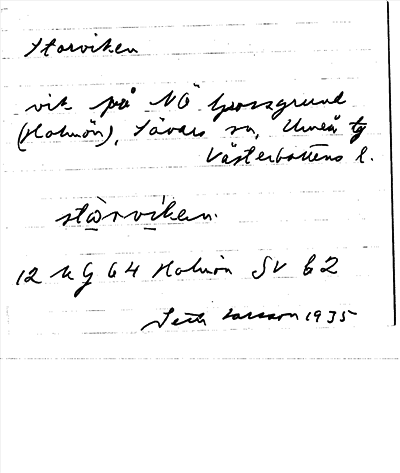 Storviken
vik på NÖ
(Holmön), Sävars sn, Umeå tg
Västerbottens l.
storviken.
12 k g 64 Holmön SV b2
Seth Larsson 1935